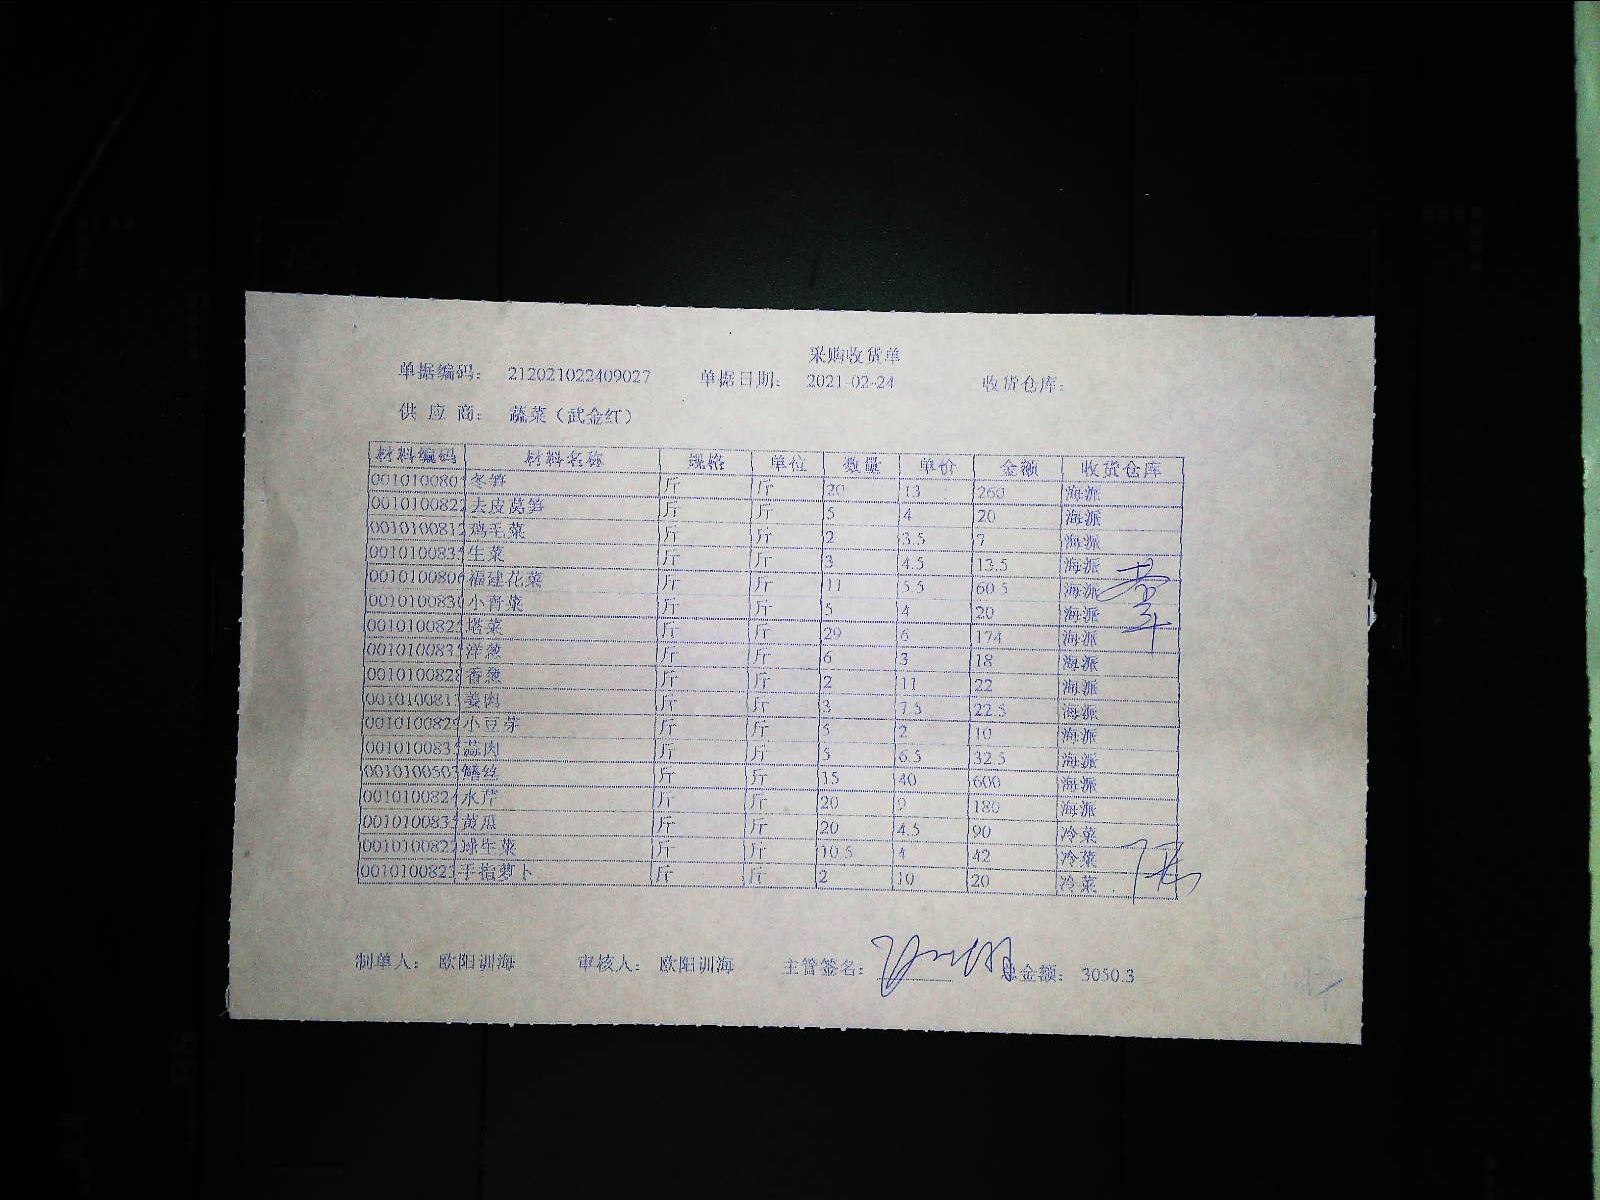 采购收货单
单据编码： 212021022409027 单据日期： 2021-02-24 收货仓库：
供 应 商： 蔬菜（武金红）
材料编码 材料名称 规格 单位 数量 单价 金额 收货仓库
0010100801 冬笋 斤 斤 20 13 260 海派
0010100822 去皮莴笋 斤 斤 5 4 20 海派
0010100812 鸡毛菜 斤 斤 2 3.5 7 海派
001010083 生菜 斤 斤 3 4.5 13.5 海派
0010100806 福建花菜 斤 斤 11 5.5 60.5 海派
0010100830 小青菜 斤 斤 5 4 20 海派
001010082 塔菜 斤 斤 29 6 174 海派
001010083 洋葱 斤 斤 6 3 18 海派
0010100828 香葱 斤 斤 2 11 22 海派
001010081 姜肉 斤 斤 3 7.5 22.5 海派
0010100829 小豆芽 斤 斤 5 2 10 海派
001010083 蒜肉 斤 斤 5 6.5 32.5 海派
001010050 鳝丝 斤 斤 15 40 600 海派
001010082 水芹 斤 斤 20 9 180 海派
001010083 黄瓜 斤 斤 20 4.5 90 冷菜
0010100822 球生菜 斤 斤 10.5 4 42 冷菜
001010082 手指萝卜 斤 斤 2 10 20 冷菜
制单人： 欧阳训海 审核人： 欧阳训海 主管签名： 总金额： 3050.3